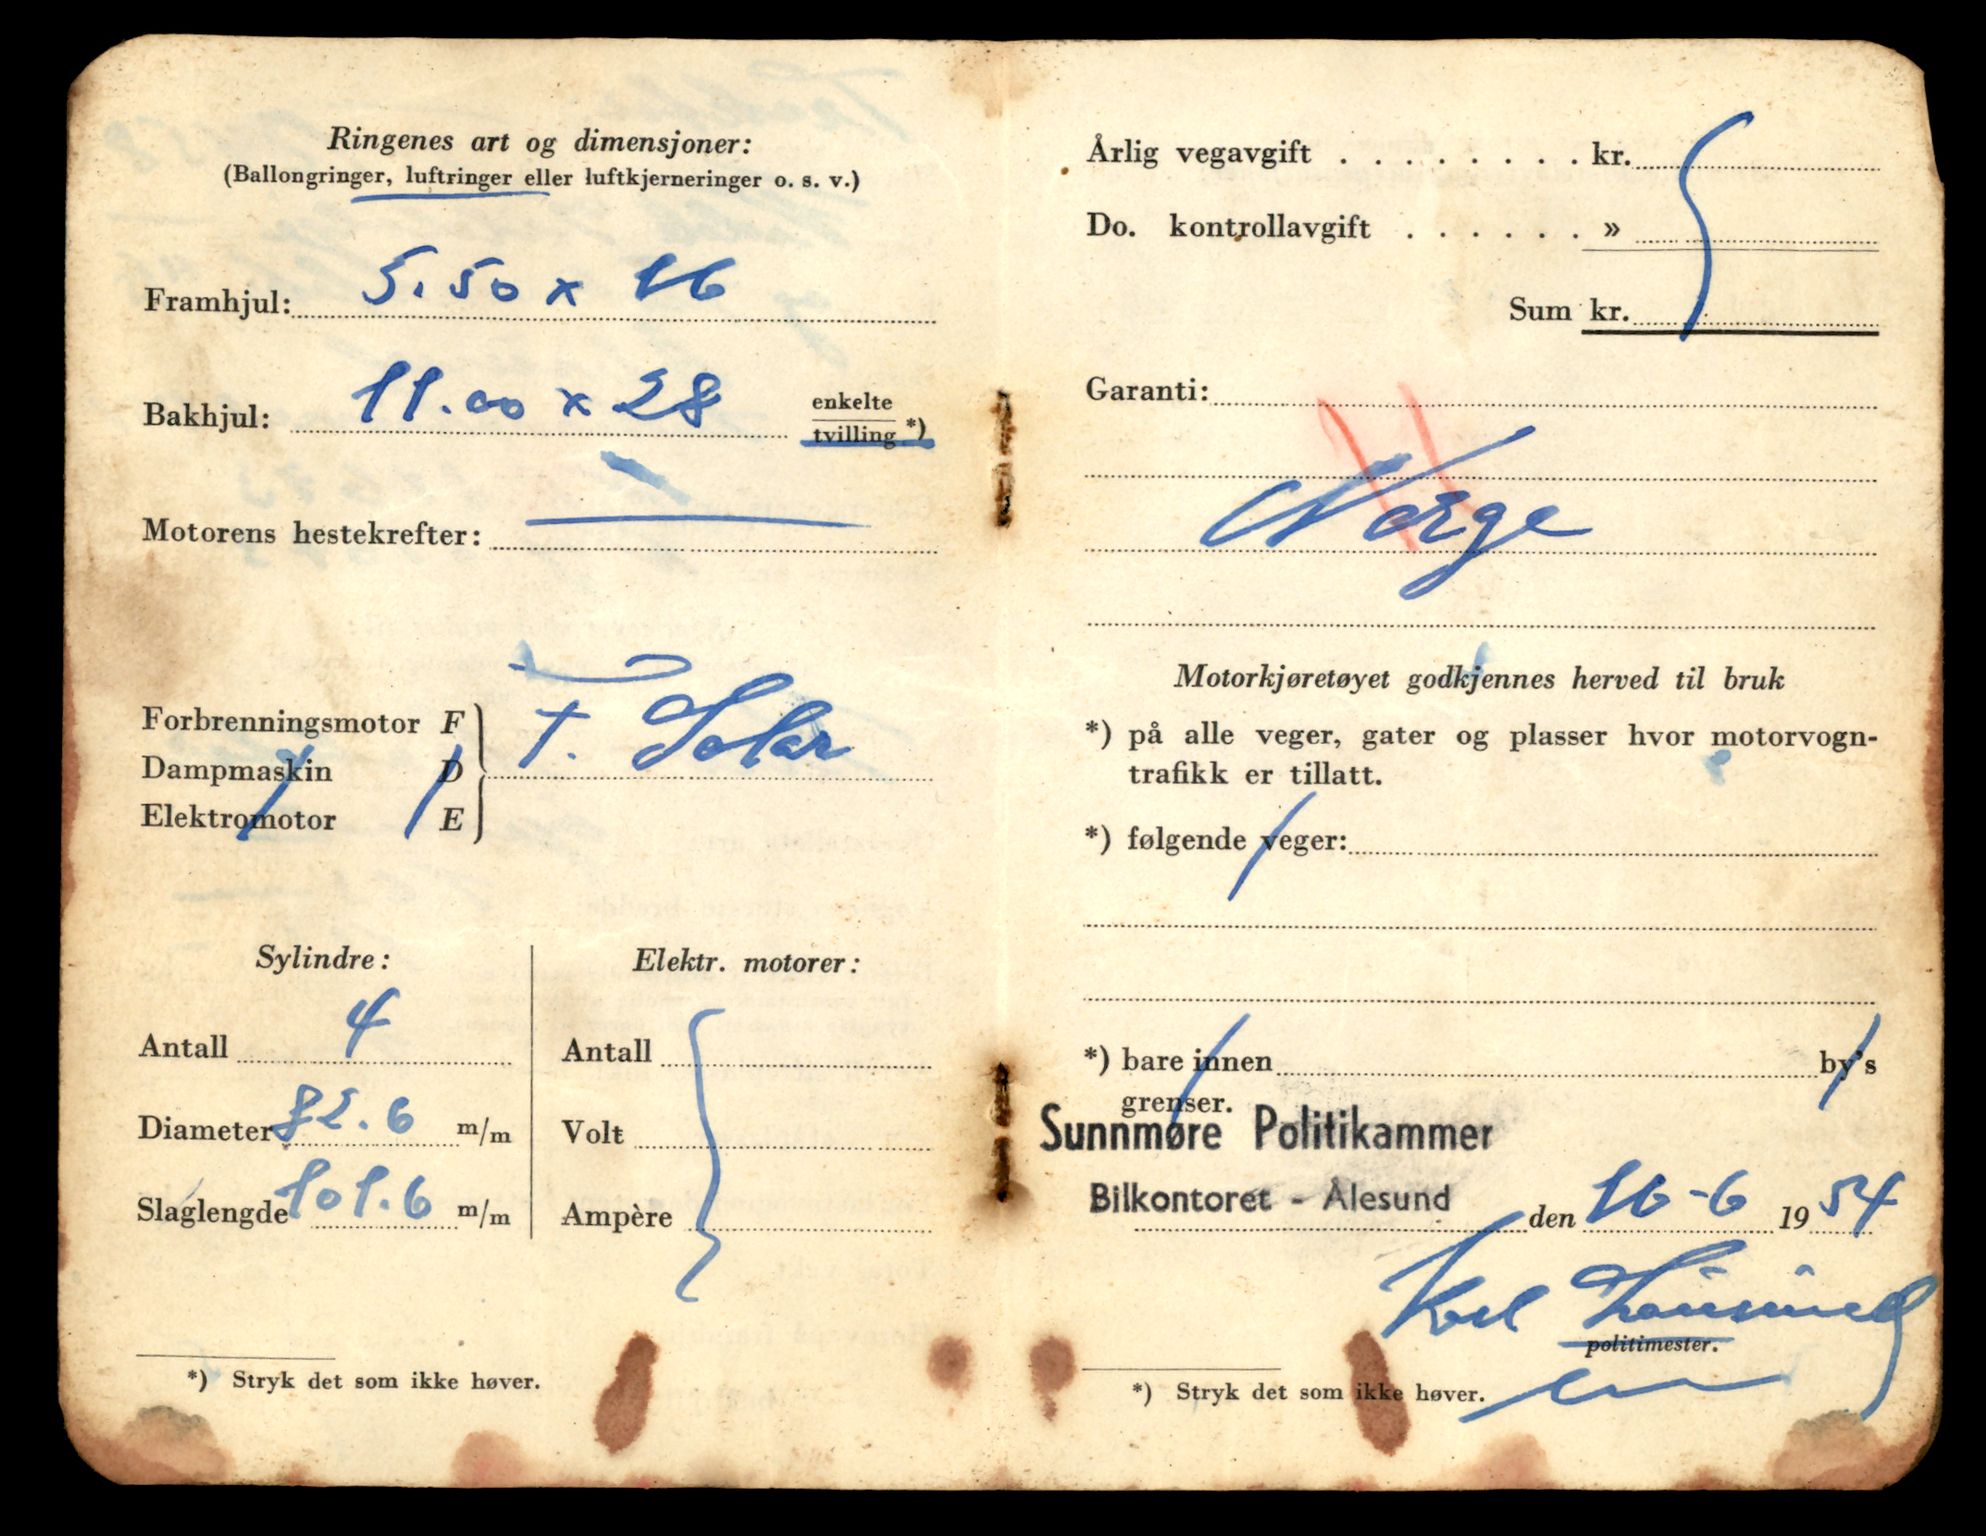 Ringenes art og dimensjoner:
(Ballongringer, luftringer eller luftkjerneringer o. s. v.)
Framhjul: 5.50 x 16
Bakhjul: 11.00 x 28 enkelte
tvilling *)
Motorens hestekrefter:
Forbrenningsmotor F
Dampmaskin D
Elektromotor E
F. Solar
Sylindre:
Antall 4
Diameter 82.6 m/m
Slaglengde 101.6 m/m
Elektr. motorer:
Antall
Volt
Ampère
*) Stryk det som ikke høver.
Årlig vegavgift . . . . . . . . kr.
Do. kontrollavgift . . . . . . »
Sum kr.
Garanti:
Norge
Motorkjøretøyet godkjennes herved til bruk
*) på alle veger, gater og plasser hvor motorvogn-
trafikk er tillatt.
*) følgende veger:
*) bare innen by's
grenser.
Sunnmøre Politikammer
Bilkontoret - Ålesund den 16-6 1954
politimester.
*) Stryk det som ikke høver.